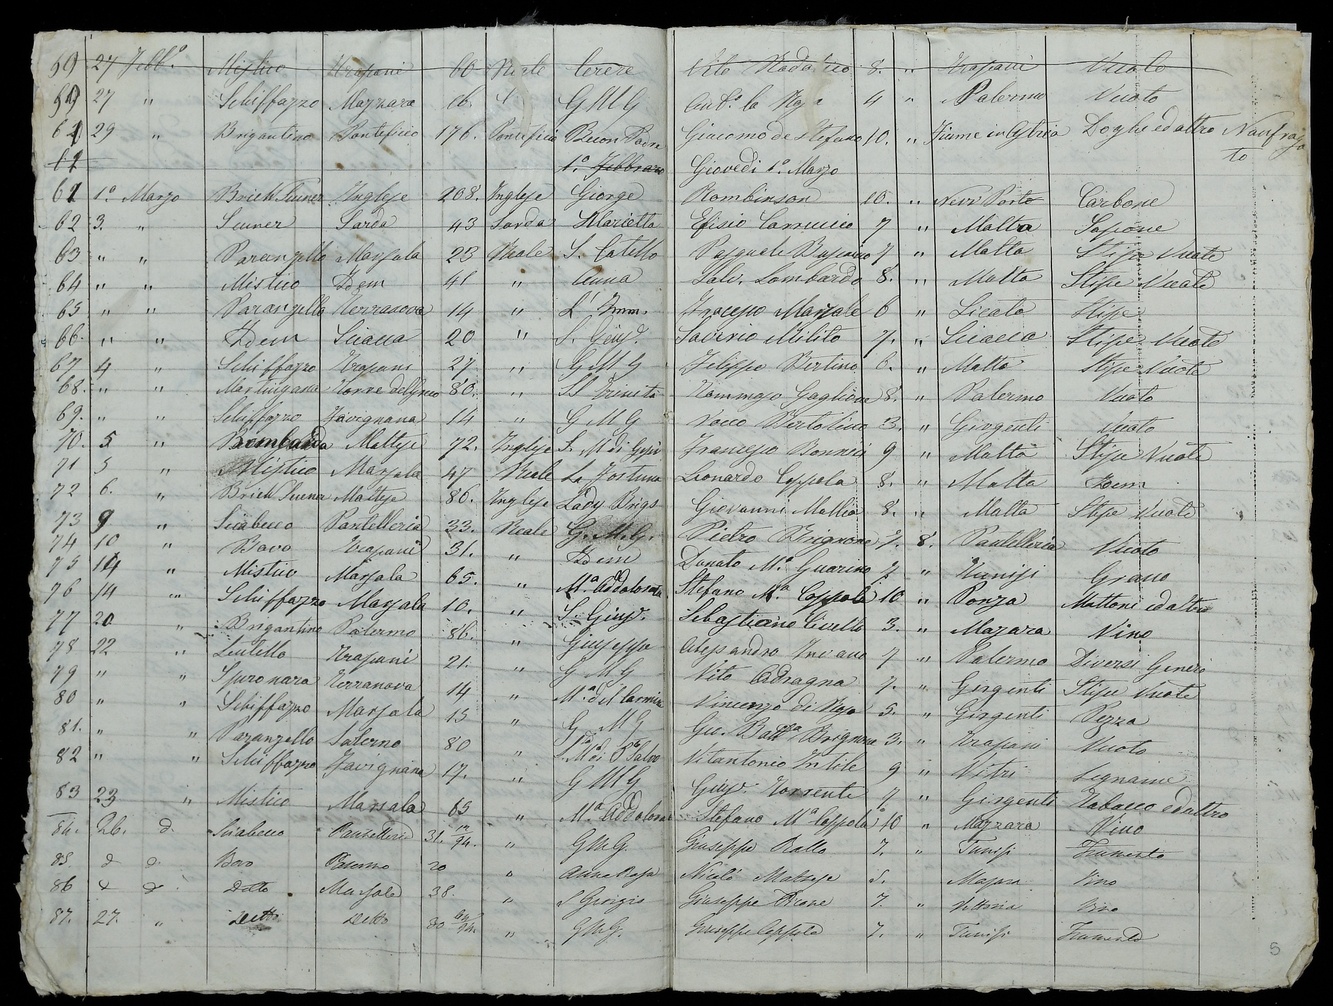 59 27 Febb.o Mistico Trapani 60 Reale Cerere Vito 8. " Trapani Vuoto
59 27 " Schiffazzo Mazzara 16. G M G Ant.o la 4 " Palermo Vuoto
61 29 " Brigantino Pontificio 176. Pontificia Buon Giacomo de Stefano 10. " Fiume in Doghe ed altro Naufraga
to
61 1.o Febbraro Giovedì 1.o Marzo
61 1.o Marzo Brick Scuner Inglese 208. Inglese George Rombinson 10. " Carbone
62 3. " Scuner Sarda 43 Sarda Marietta Efisio 7 " Malta Sapone
63 " " Paranzello Marsala 23 Reale S. Cataldo Pasquale 7 " Malta Stipe Vuote
64 " " Mistico Idem 41 " Anna Salv. Lombardo 8. " Malta Stipe Vuote
65 " " Paranzello Terranova 14 " L' Imm. Francesco 6 " Licata Stipe
66. " " Idem Sciacca 20 " S. Giusp. Saverio Milito 7. " Sciacca Stipe Vuote
67. 4 " Schiffazzo Trapani 27 " G M G Filippo Bertino 6. " Malta Stipe Vuote
68. " " Martingana Torre del Greco 80. " SS Trinita Tommaso Gaglione 8. " Palermo Vuoto
69. " " Schiffazzo Favignana 14 " G M G Bertolino 3. " Girgenti Vuoto
70. 5 " Bombarda Maltese 72. Inglese S. M. di Francesco 9 " Malta Stipe Vuote
71 5 " Mistico Marsala 47 Reale La Fortuna Leonardo Coppola 8. " Malta Idem
72 6. " Brick Scuner Maltese 86. Inglese Lady Giovanni Mallia 8. " Malta Stipe Vuote
73 9 " Sciabecco Pantelleria 33. Reale G. M. G. Pietro Brignone 7. 8. Pantelleria Vuoto
74 10 " Bovo Trapani 31. " Idem Donato M.o Guarino 7 " Tunisi Grano
75 14 " Mistico Marsala 65. " M.a Addolorata Stefano M.a Coppola 10 " Ponza Mattoni ed altro
76 14 " Schiffazzo Marsala 10. " S. Giusp. Sebastiano 3. " Mazara Vino
77 20 " Brigantino Palermo 86. " Giuseppe Alessandro 7 " Palermo Diversi Generi
78 22 " Leutello Trapani 21. " G M G Vito Adragna 7. " Girgenti Stipe Vuote
79 " " Speronara Terranova 14 " M.a del Carmine Vincenzo di 5. " Girgenti Pezza
80 " " Schiffazzo Marsala 13 " G M G Gio. Batt.a Brignone 3. " Trapani Vuoto
81. " " Paranzello Salerno 80 " Vitantonio 9 " Vitri Legname
82 " " Schiffazzo Favignana 17. " G M G Giusp. Torrente 4 " Girgenti Tabacco ed altro
83 23 " Mistico Marsala 65 " M.a Addolorata Stefano M.a Coppola 10 " Mazzara Vino
84. 26. d. Sciabecco Pantelleria 31. 12/94. " G M G Giuseppe Rallo 7. " Tunisi Frumento
85 d d. Bovo 20 " Anna Rosa Nicolò 5. " Vino
86 d d. Detto Marsala 38. " S Giorgio Giuseppe 7. " Vittoria Vino
87. 27. " Detto Detto 30 " G M G. Giuseppe Coppola 7. " Tunisi Frumento
5